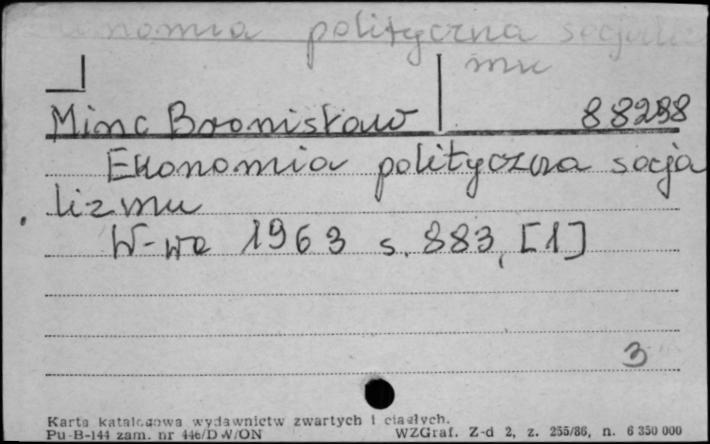 Ekonomia polityczna socjaliz
mu
Minc Bronisław 88288
Ekonomia polityczna socja
lizmu
W-wa 1963 s. 883, [1]
3
Karta katalogowa wydawnictw zwartych i ciągłych.
Pu-B-144 zam. nr 446/DW/ON WZGraf. Z-d 2, z. 255/86, n. 6 350 000